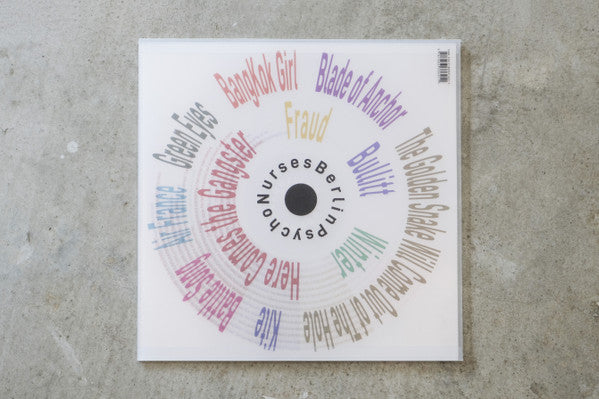 Bangkok Girl
Blade of Anchor
The Golden Snake Will Come Out of The Hole
Kite
Battle Song
Air France
Green Eyes
Fraud
Bullitt
Winter
Here Comes the Gangster
NursesBerlinpsycho